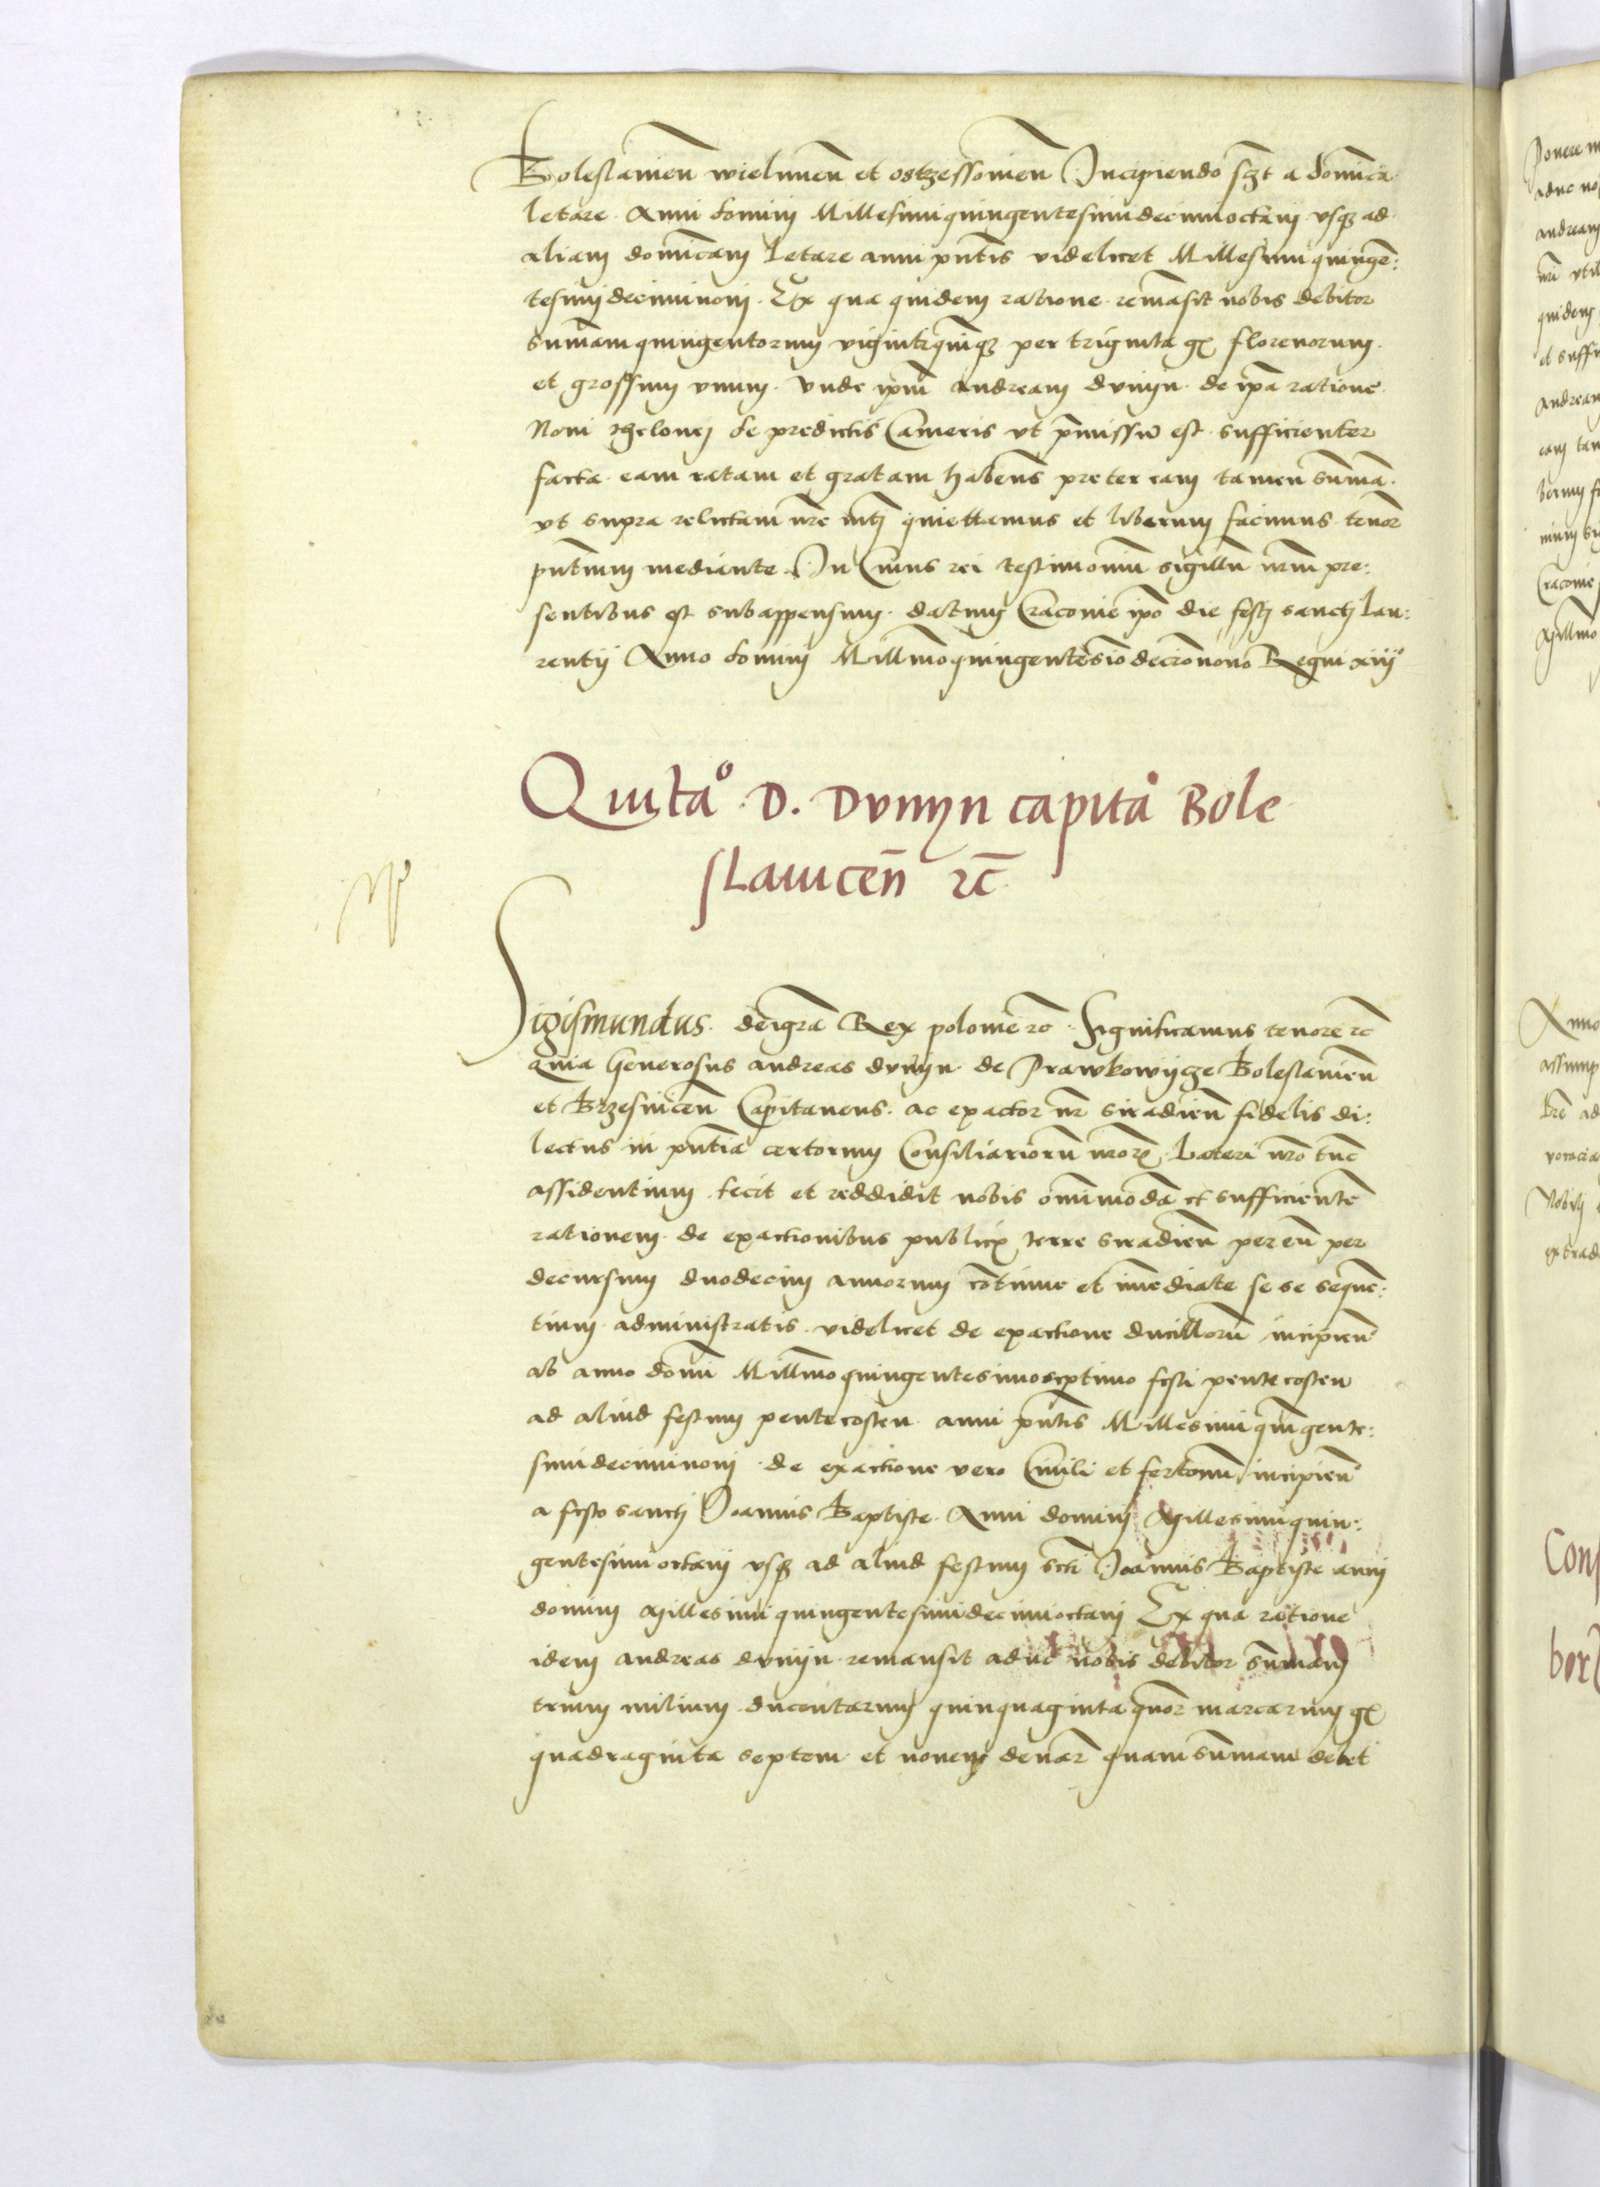 Boleslamien wielunen et ostzessomien Incipiendo sczt a domica
letare Anni domini Millesimiquingentesimidecimioctavi vsqz ad
aliam domicam letare anni pntis videlicet Millesimi quinge:
tesimidecimi noni. Ex qua quidem ratione remasit nobis debitor
sumam quingentorum vigintiquinqz per triginta gr florenorum
et grossum vnum. Vnde ipm andream dvnyn de ipa ratione
Novi thelonei de predictis Cameris vt pmissu est sufficienter
facta eam ratam et gratam habens preter eam tamen suma
vt supra relictam nre quiettamus et liberum facimus tenor
pntium mediante. In Cuius rei testimoniu sigillu nrm pre:
sentibus est subappensum. datum Cracovie ipo die festi sancti lau:
rentij Anno domini Millmoquingentesiodecionono Regni xiij
Quita D. Dvnyn capita Bole
slauicen rc
Sigismundus deigra Rex polonie rc Significamus tenore rc
quia Generosus andreas dvnyn de Prawkowycze Boleslamien
et Brzesnicen Capitaneus ac exactor nr siradien fidelis di:
lectus in pntia certorum Consiliarioru nror Lateri nro tuc
assidentium fecit et reddidit nobis omnimoda et sufficiente
rationem de exactionibus publicis terre siradien per eu per
decursum duodecim annorum cotinue et imediate se se seque:
tium administratis videlicet de exactione ducilloru incipien
ab anno domi Millmoquingentesimoseptimo festi pentecosten
ad aliud festum pentecosten anni pntis Millesimi quingente:
simidecimi noni de exactione vero Civili et fertonu incipien
a festo sancti Joannis Baptiste Anni domini Millesimiquin:
gentesimioctavi vsqz ad aliud festum scti Joannis Baptiste anni
domini Millesimi quingentesimidecimioctavi Ex qua ratione
idem andreas dvnyn remansit aduc nobis debitor sumam
trium milium ducentarum quinquaginta quor marcarum gr
quadraginta septem et novem denar quam sumam debet